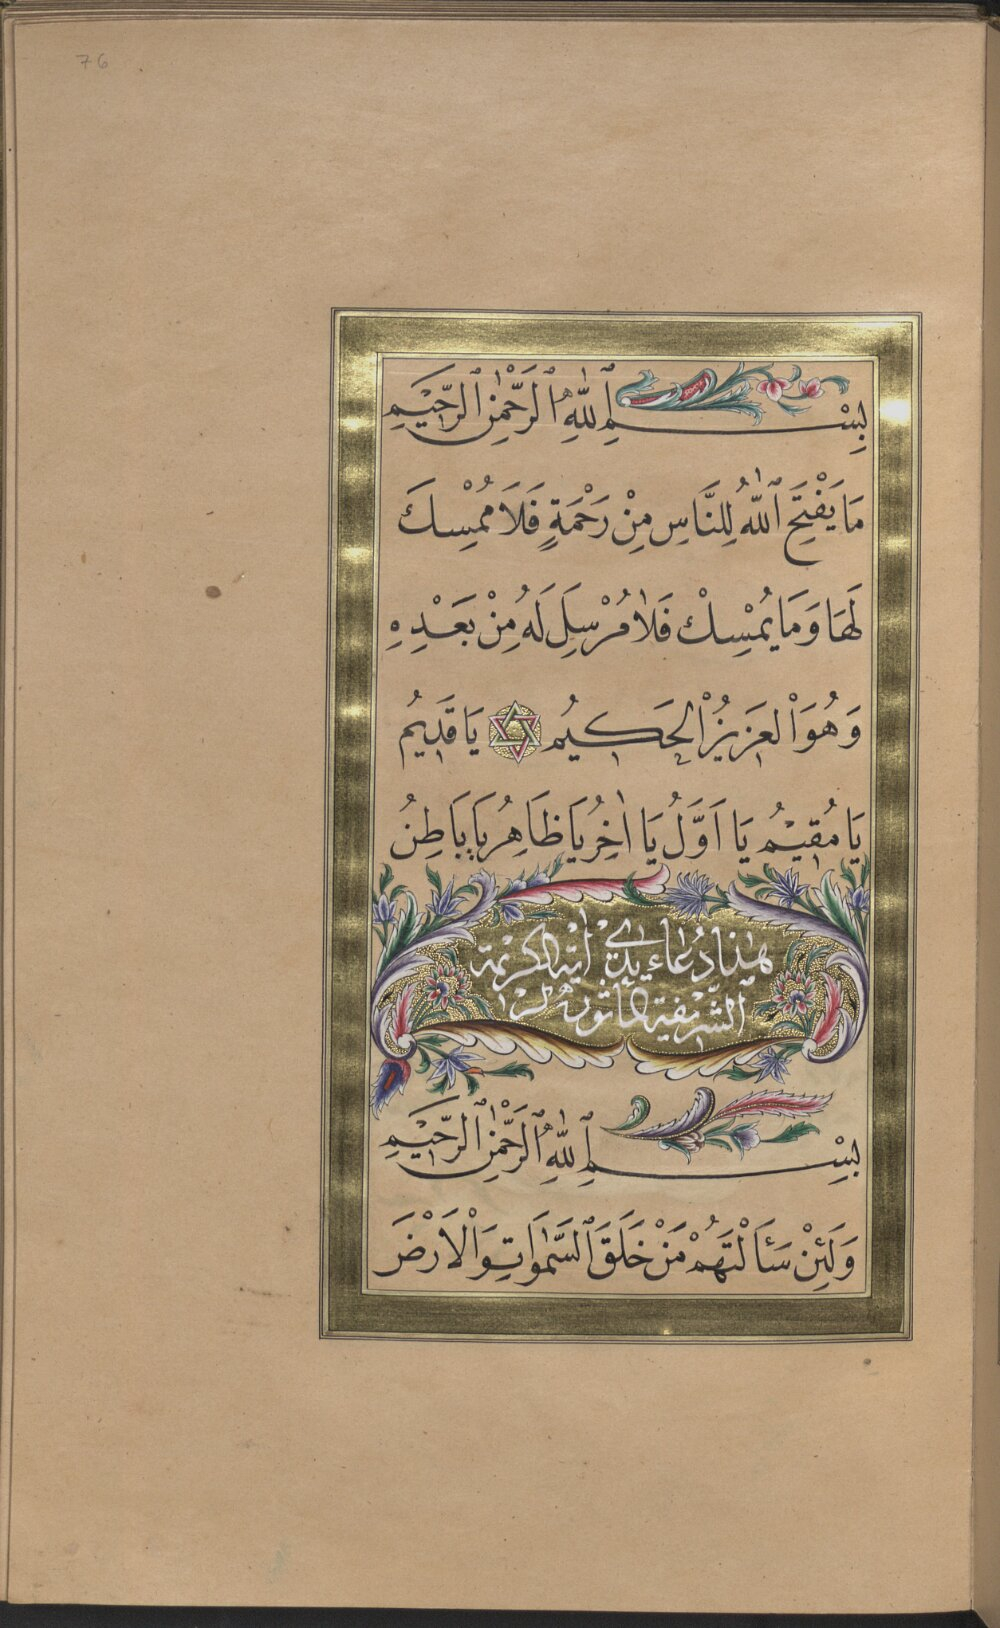 76
بِسْمِ ٱللّٰهِ ٱلرَّحْمٰنِ ٱلرَّحٖيمِ
مَا يَفْتَحِ ٱللّٰهُ لِلنَّاسِ مِنْ رَحْمَةٍ فَلَا مُمْسِكَ
لَهَا وَمَا يُمْسِكْ فَلَا مُرْسِلَ لَهُ مِنْ بَعْدِهِ
وَهُوَ الْعَزِيزُ الْحَكٖيمُ يَا قَدٖيمُ
يَا مُقٖيمُ يَا اَوَّلُ يَا اٰخِرُ يَا ظَاهِرُ يَا بَاطِنُ
هٰذَا دُعَاءِ يَدِي اٰيَةِ الْكَرٖيمَة
ٱلشَّرٖيفَة
بِسْمِ ٱللّٰهِ ٱلرَّحْمٰنِ ٱلرَّحٖيمِ
وَلَئِنْ سَئَاَلْتَهُمْ مَنْ خَلَقَ ٱلسَّمٰوَاتِ وَالْاَرْضَ